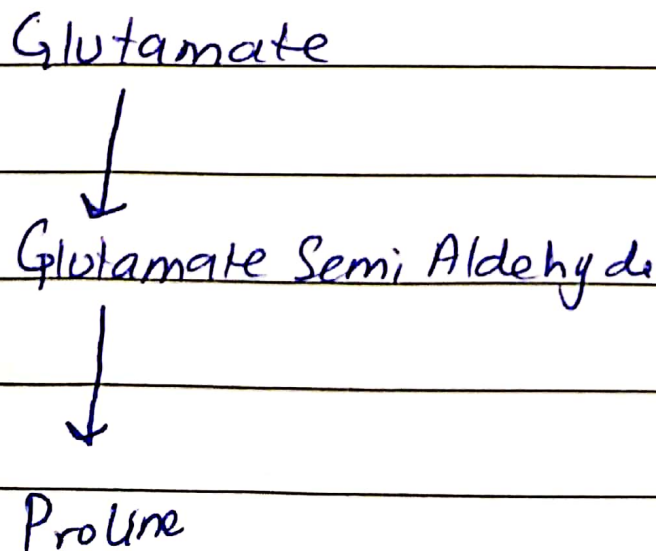 Glutamate
Glutamate Semi Aldehyde
Proline